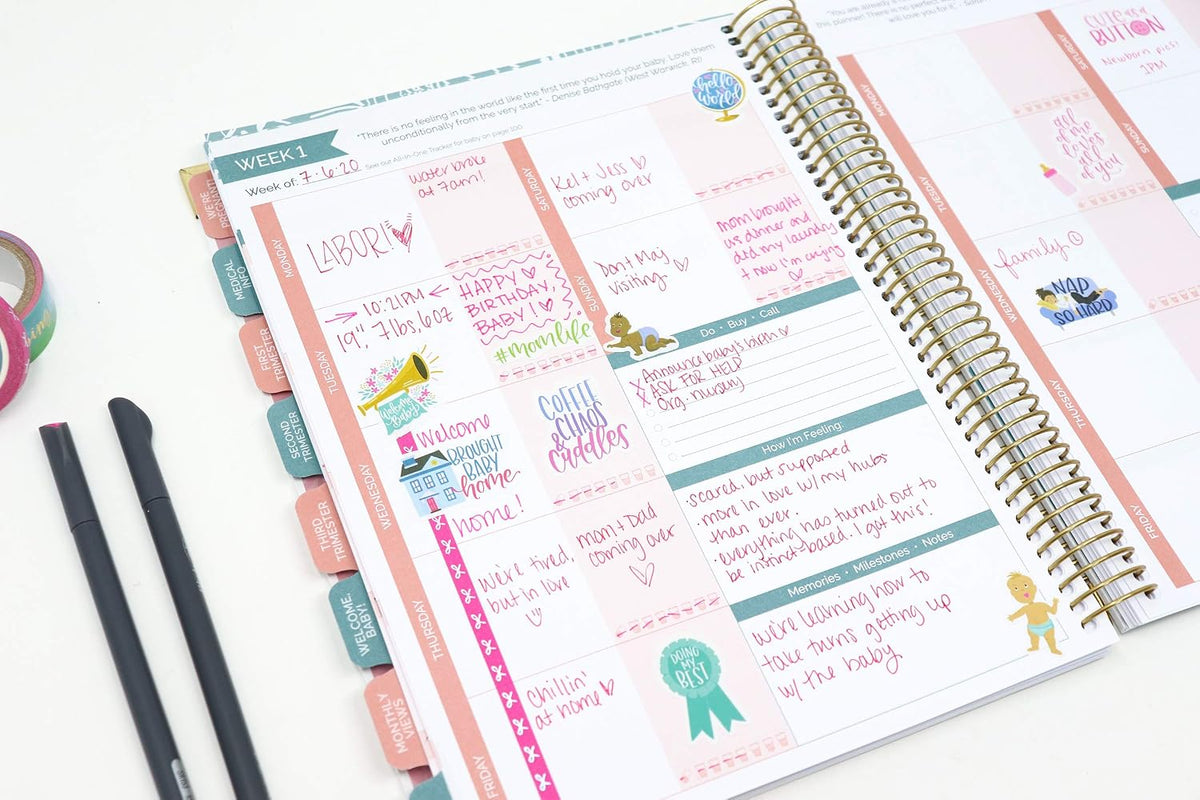 "There is no feeling in the world like the first time you hold your baby. Love them
unconditionally from the very start." - Denise Bathgate (West Warwick, RI)
WEEK 1
See our All-In-One Tracker for baby on page 100
Week of: 7-6-20
hello
world
WERE
PREGNANT!
MEDICAL
INFO
FIRST
TRIMESTER
SECOND
TRIMESTER
THIRD
TRIMESTER
WELCOME,
BABY!
MONTHLY
VIEWS
MONDAY
LABOR!
water broke
at 7am!
TUESDAY
10:21PM
19", 7lbs, 6oz
HAPPY
BIRTHDAY,
BABY!
#momlife
Welcome
Baby!
WEDNESDAY
Welcome
BROUGHT
BABY
home
home!
COFFEE
CHAOS
&
Cuddles
THURSDAY
we're tired,
but in love
mom + Dad
coming over
FRIDAY
Chillin'
at home
DOING
MY
BEST
SATURDAY
Kel + Jess
coming over
SUNDAY
Don + May
visiting
mom brought
us dinner and
did my laundry
+ now I'm crying
Do • Buy • Call
Announce baby's birth
ASK FOR HELP
Org. nursery
How I'm Feeling:
· scared. but supposed
· more in love w/ my hubs
than ever.
· everything has turned out to
be instinct-based. I got this!
Memories • Milestones • Notes
we're learning how to
take turns getting up
w/ the baby
"You are already
this planner! There is no perfect
will love you for it." -
MONDAY
TUESDAY
WEDNESDAY
family
NAP
SO HARD
THURSDAY
FRIDAY
SATURDAY
CUTE as a
BUTTON
Newborn pics!
1PM
SUNDAY
all
of me
loves
all
of you